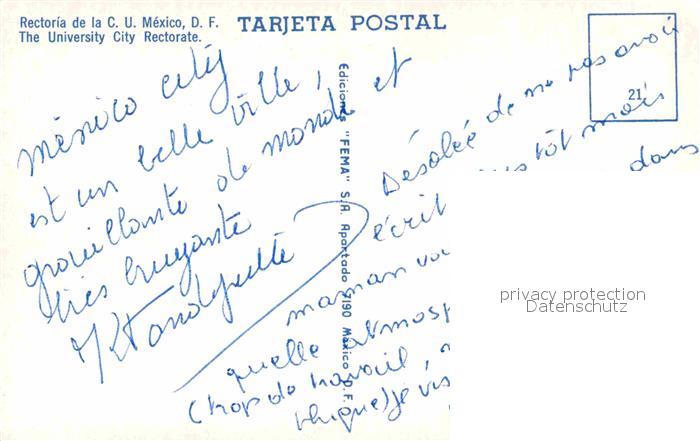 Rectoría de la C. U. México, D. F.
The University City Rectorate.
TARJETA POSTAL
21
Ediciones "FEMA" S.A. Apartado 7190 México D.F.
México city
est un belle ville,
grouillante de monde et
très bruyante
Désolée de ne pas avoir
écrit tôt mais
dans
maman
quelle atmosp
(trop de travail,
je vis
privacy protection
Datenschutz